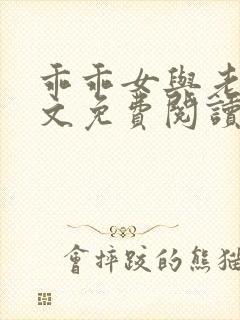 乖乖女與老
文免費閱讀
會摔跤的熊猫